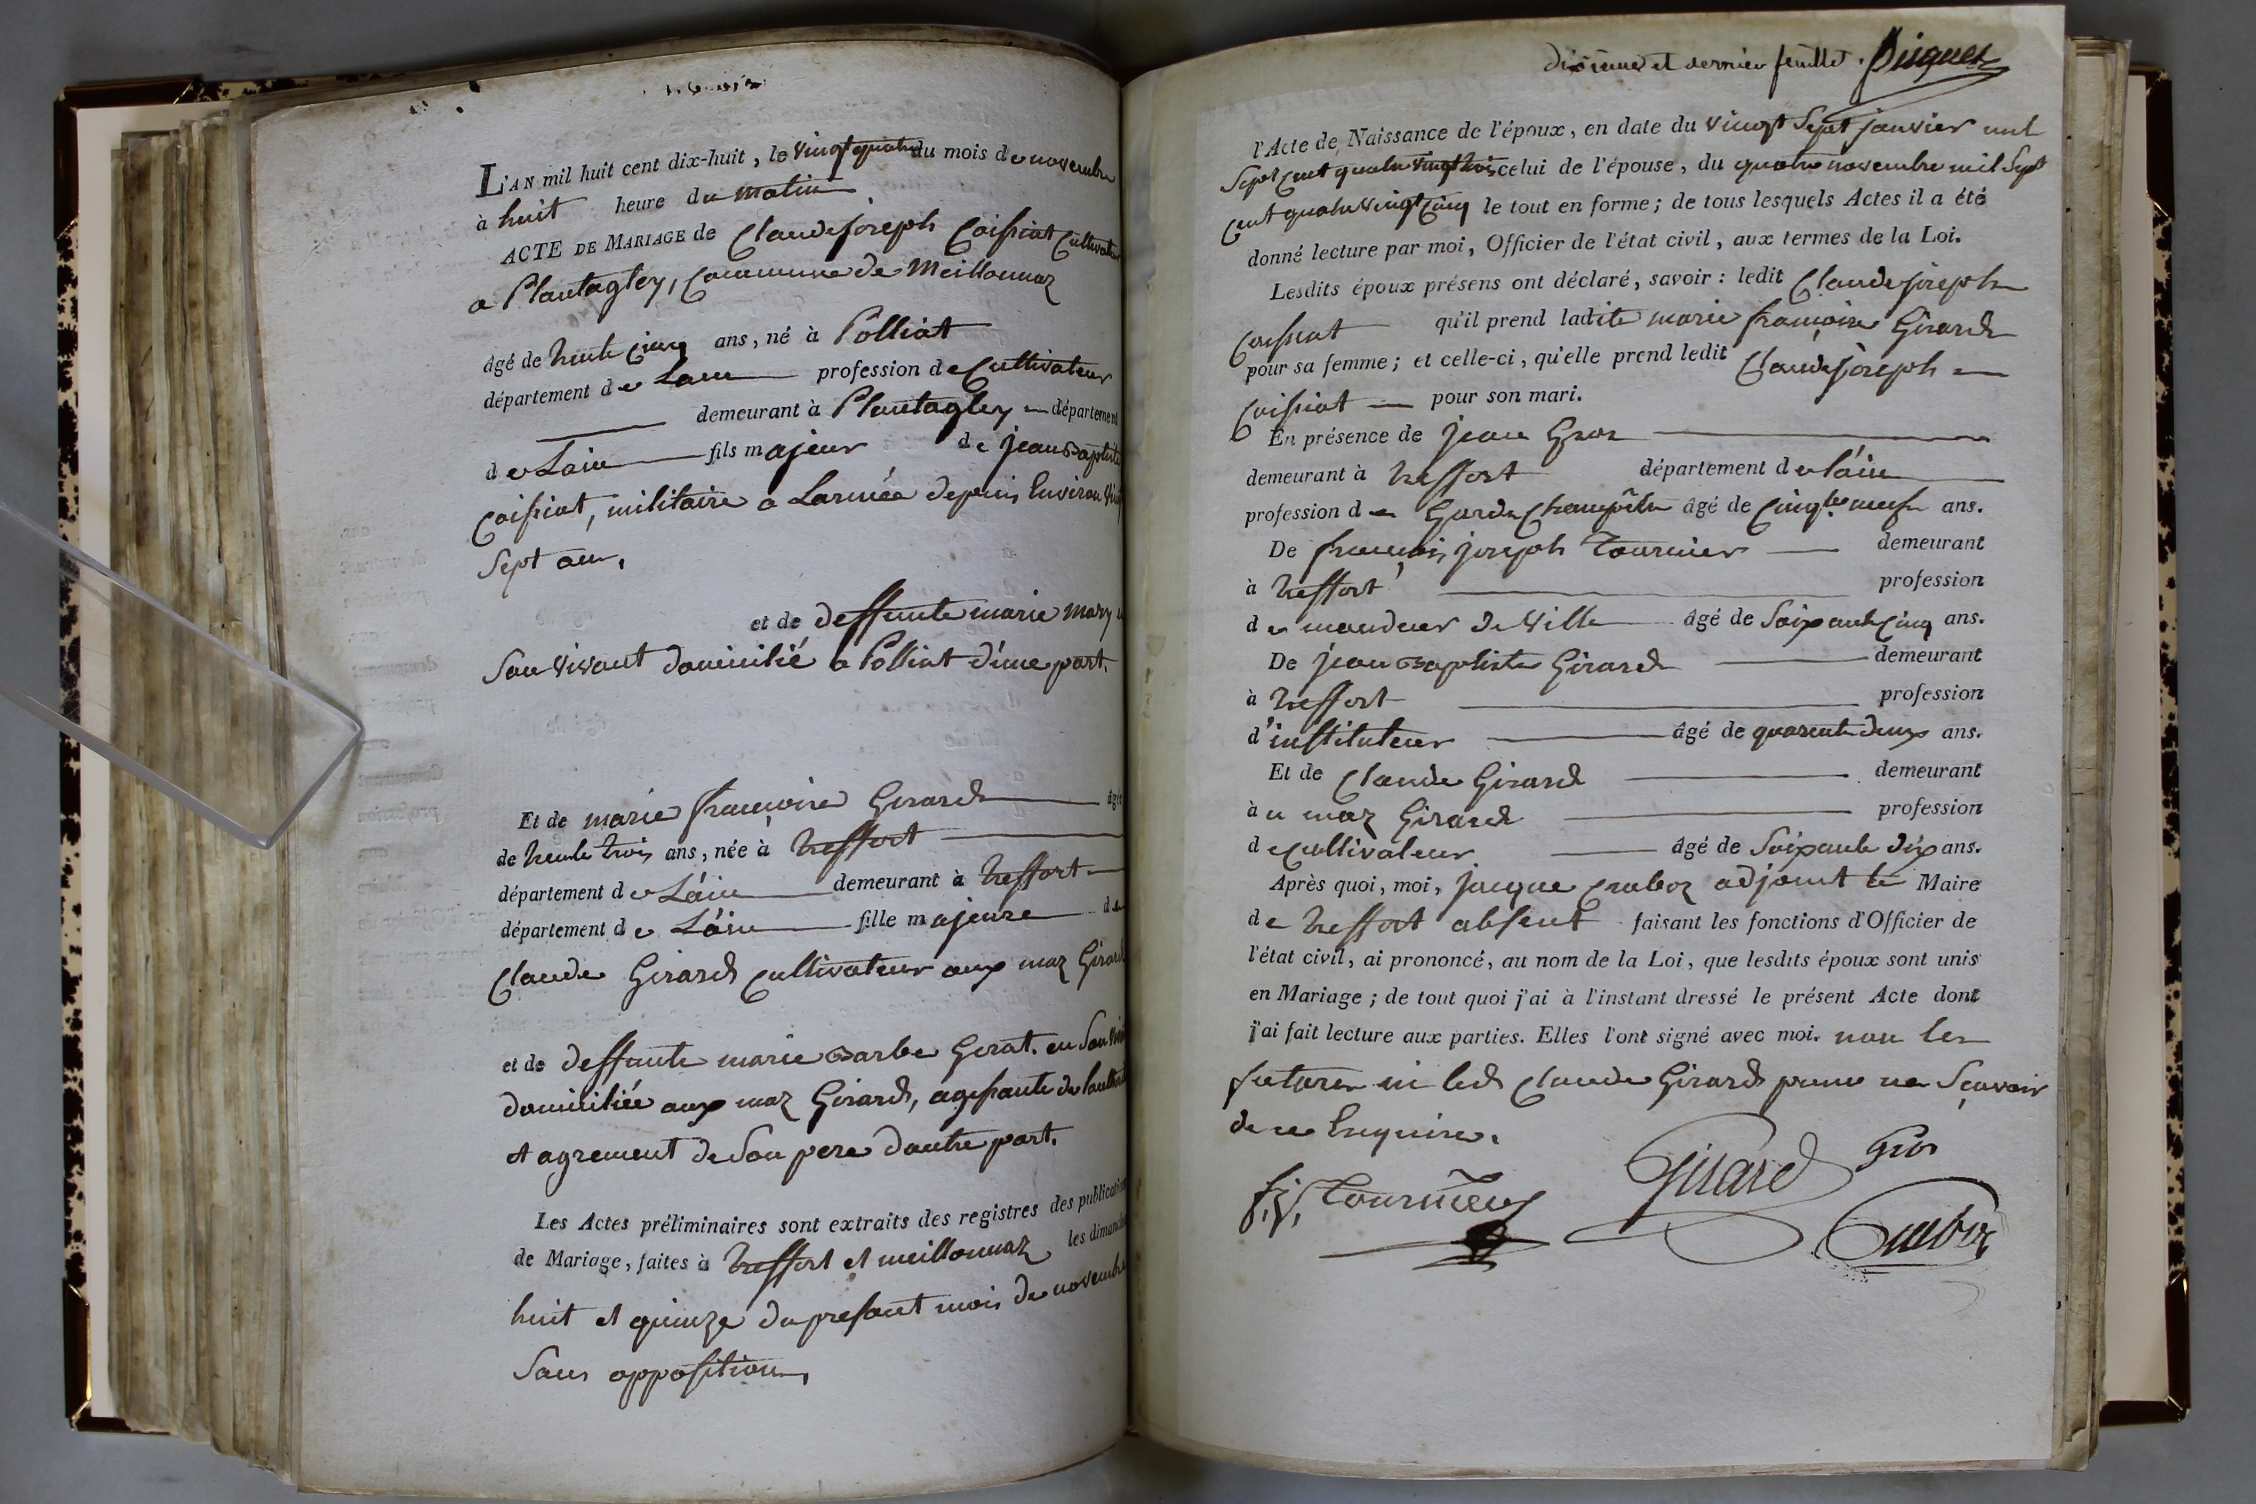 L'AN mil huit cent dix-huit, le vingt quatre du mois de novembre
à huit heure du matin
ACTE DE MARIAGE de Claude joseph Coissiat Cultivateur
a Plantagley, Commune de Meillonnaz
âgé de trente cinq ans, né à Polliat
département de Lain profession de Cultivateur
demeurant à Plantagley département
de Lain fils majeur de jean Baptiste
Coissiat, militaire a Larmée depuis Environ vingt
Sept ans,
et de deffunte marie Mary en
Son vivant domicilié a Polliat d'une part.
Et de marie françoise Girard âgée
de trente trois ans, née à treffort
département de Láin demeurant à treffort
département de Láin fille majeure de
Claude Girard Cultivateur aux maz Girard
et de deffunte marie Barbe Gerat. en Son vivant
domiciliée aux maz Girard, agissante de lauthorité
et agrement de Son pere dautre part.
Les Actes préliminaires sont extraits des registres des publications
de Mariage, faites à treffort et meillonnaz les dimanches
huit et quinze du présent mois de novembre
Sans opposition,
dixieme et dernier feuillet.
l'Acte de Naissance de l'époux, en date du vingt Sept janvier mil
Sept Cent quatre vingt trois celui de l'épouse, du quatre novembre mil Sept
Cent quatre vingt Cinq le tout en forme; de tous lesquels Actes il a été
donné lecture par moi, Officier de l'état civil, aux termes de la Loi.
Lesdits époux présens ont déclaré, savoir: ledit Claude joseph
Coissiat qu'il prend ladite marie françoise Girard
pour sa femme; et celle-ci, qu'elle prend ledit Claude joseph
Coissiat pour son mari.
En présence de jean Gros
demeurant à treffort département de láin
profession de Garde Champêtre âgé de Cinqte neuf ans.
De françois joseph Tournier demeurant
à treffort profession
de mandeur de Ville âgé de Soixante Cinq ans.
De jean Baptiste Girard demeurant
à treffort profession
d'instituteur âgé de quarente deux ans.
Et de Claude Girard demeurant
à u maz Girard profession
de Cultivateur âgé de Soixante dix ans.
Après quoi, moi, jacque Craboz adjoint le Maire
de treffort absent faisant les fonctions d'Officier de
l'état civil, ai prononcé, au nom de la Loi, que lesdits époux sont unis
en Mariage; de tout quoi j'ai à l'instant dressé le présent Acte dont
j'ai fait lecture aux parties. Elles l'ont signé avec moi. non les
futures ni led Claude Girard pour ne Sçavoir
de ce Enquire.
f,j, Tournieux Girard Gros
Craboz